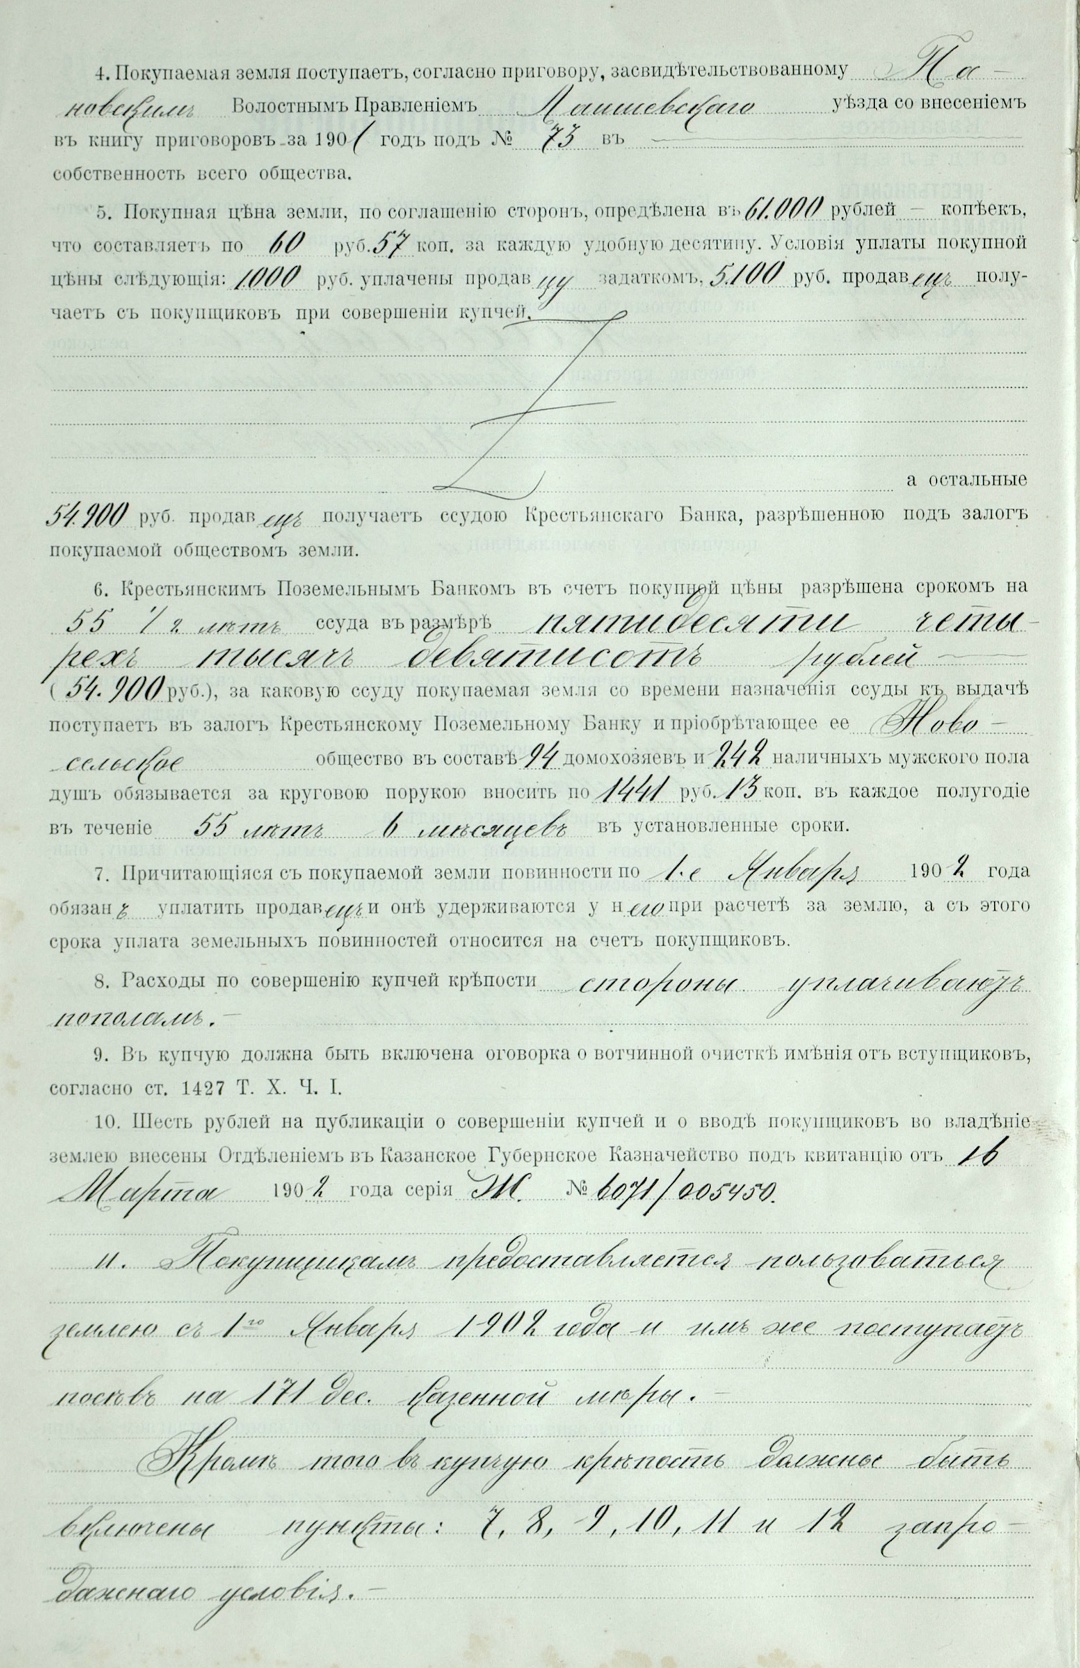 4. Покупаемая земля поступаетъ, согласно приговору, засвидѣтельствованному Па-
новскимъ Волостнымъ Правленіемъ Лаишевскаго уѣзда со внесеніемъ
въ книгу приговоровъ за 1901 годъ подъ № 73 въ
собственность всего общества.
5. Покупная цѣна земли, по соглашенію сторонъ, опредѣлена въ 61.000 рублей — копѣекъ,
что составляетъ по 60 руб. 57 коп. за каждую удобную десятину. Условія уплаты покупной
цѣны слѣдующія: 1000 руб. уплачены продавцу задаткомъ, 5.100 руб. продавецъ полу-
чаетъ съ покупщиковъ при совершеніи купчей.
а остальные
54.900 руб. продавецъ получаетъ ссудою Крестьянскаго Банка, разрѣшенною подъ залогъ
покупаемой обществомъ земли.
6. Крестьянскимъ Поземельнымъ Банкомъ въ счетъ покупной цѣны разрѣшена срокомъ на
55 1/2 лѣтъ ссуда въ размѣрѣ пятидесяти четы-
рехъ тысячъ девятисотъ рублей
(54.900 руб.), за каковую ссуду покупаемая земля со времени назначенія ссуды къ выдачѣ
поступаетъ въ залогъ Крестьянскому Поземельному Банку и пріобрѣтающее ее Ново-
сельское общество въ составѣ 94 домохозяевъ и 242 наличныхъ мужского пола
душъ обязывается за круговою порукою вносить по 1441 руб. 13 коп. въ каждое полугодіе
въ теченіе 55 лѣтъ 6 мѣсяцевъ въ установленные сроки.
7. Причитающіяся съ покупаемой земли повинности по 1-е Января 1902 года
обязанъ уплатить продавецъ и онѣ удерживаются у него при расчетѣ за землю, а съ этого
срока уплата земельныхъ повинностей относится на счетъ покупщиковъ.
8. Расходы по совершенію купчей крѣпости стороны уплачиваютъ
пополамъ.—
9. Въ купчую должна быть включена оговорка о вотчинной очисткѣ имѣнія отъ вступщиковъ,
согласно ст. 1427 Т. X. Ч. I.
10. Шесть рублей на публикаціи о совершеніи купчей и о вводѣ покупщиковъ во владѣніе
землею внесены Отдѣленіемъ въ Казанское Губернское Казначейство подъ квитанцію отъ 16
Марта 1902 года серія Ж. № 6071/005450.
11. Покупщикамъ предоставляется пользоваться
землею съ 1го Января 1902 года и имъ же поступаетъ
посѣвъ на 171 дес. казенной мѣры.—
Кромѣ того въ купчую крѣпость должны быть
включены пункты: 7, 8, 9, 10, 11 и 12 запро-
дажнаго условія.—